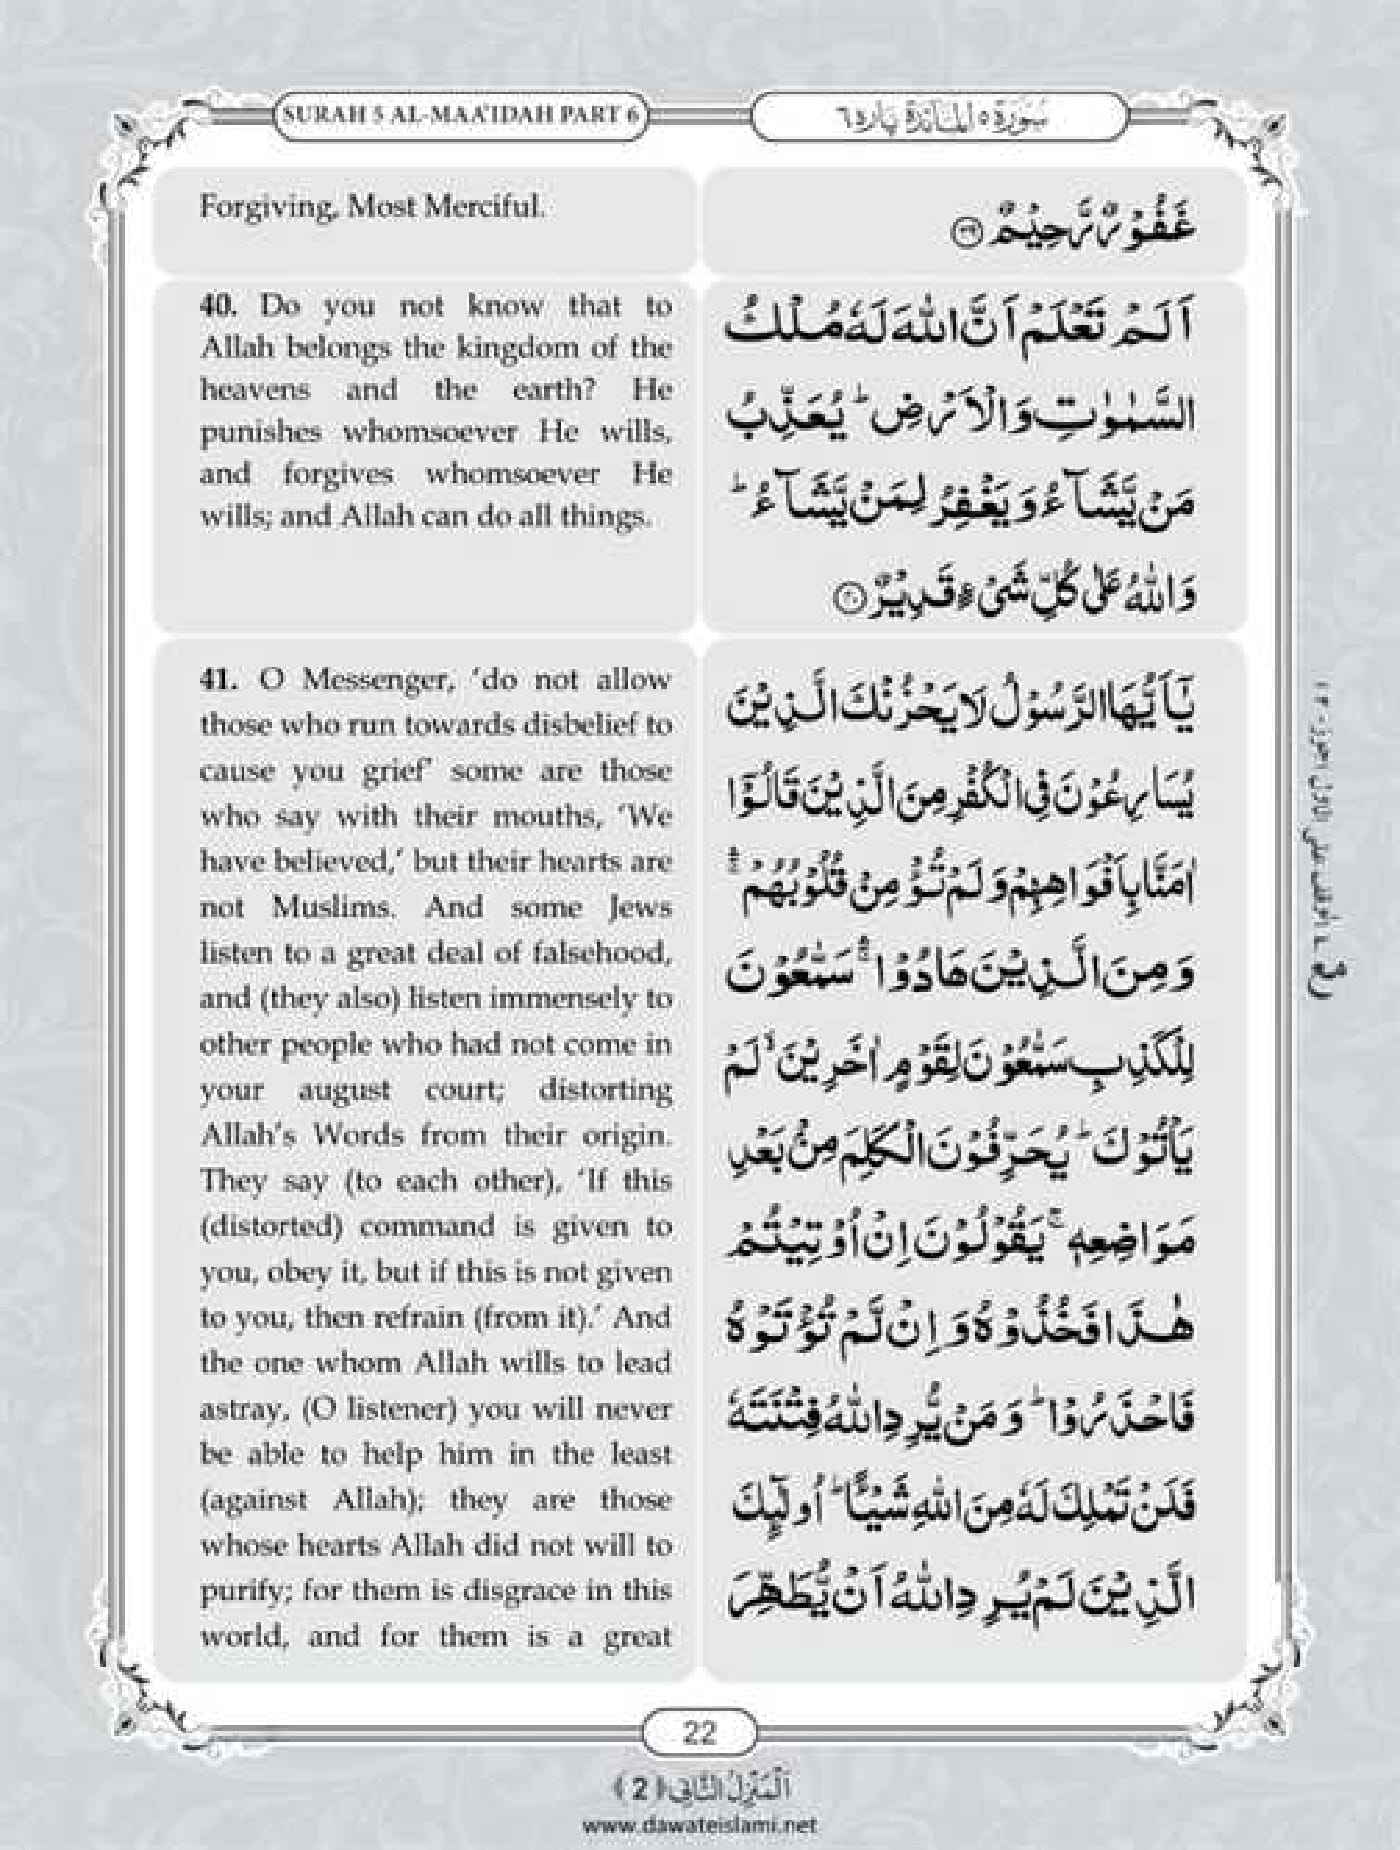 SURAH 5 AL-MAA'IDAH PART 6
سُوْرَة ٥ اَلْمَآئِدَة پاره ٦
Forgiving, Most Merciful.
غَفُوْرٌ رَّحِیْمٌ ﴿۳۹﴾
40. Do you not know that to
Allah belongs the kingdom of the
heavens and the earth? He
punishes whomsoever He wills,
and forgives whomsoever He
wills; and Allah can do all things.
اَلَمْ تَعْلَمْ اَنَّ اللّٰهَ لَهٗ مُلْكُ
السَّمٰوٰتِ وَ الْاَرْضِ ؕ یُعَذِّبُ
مَنْ یَّشَآءُ وَ یَغْفِرُ لِمَنْ یَّشَآءُ ؕ
وَ اللّٰهُ عَلٰی كُلِّ شَیْءٍ قَدِیْرٌ ﴿۴۰﴾
41. O Messenger, ‘do not allow
those who run towards disbelief to
cause you grief’ some are those
who say with their mouths, ‘We
have believed,’ but their hearts are
not Muslims. And some Jews
listen to a great deal of falsehood,
and (they also) listen immensely to
other people who had not come in
your august court; distorting
Allah's Words from their origin.
They say (to each other), ‘If this
(distorted) command is given to
you, obey it, but if this is not given
to you, then refrain (from it).’ And
the one whom Allah wills to lead
astray, (O listener) you will never
be able to help him in the least
(against Allah); they are those
whose hearts Allah did not will to
purify; for them is disgrace in this
world, and for them is a great
یٰۤاَیُّهَا الرَّسُوْلُ لَا یَحْزُنْكَ الَّذِیْنَ
یُسَارِعُوْنَ فِی الْكُفْرِ مِنَ الَّذِیْنَ قَالُوْۤا
اٰمَنَّا بِاَفْوَاهِهِمْ وَ لَمْ تُؤْمِنْ قُلُوْبُهُمْ ۛۚ
وَ مِنَ الَّذِیْنَ هَادُوْا ۛۚ سَمّٰعُوْنَ
لِلْكَذِبِ سَمّٰعُوْنَ لِقَوْمٍ اٰخَرِیْنَ ۙ لَمْ
یَاْتُوْكَ ؕ یُحَرِّفُوْنَ الْكَلِمَ مِنْۢ بَعْدِ
مَوَاضِعِهٖ ۚ یَقُوْلُوْنَ اِنْ اُوْتِیْتُمْ
هٰذَا فَخُذُوْهُ وَ اِنْ لَّمْ تُؤْتَوْهُ
فَاحْذَرُوْا ؕ وَ مَنْ یُّرِدِ اللّٰهُ فِتْنَتَهٗ
فَلَنْ تَمْلِكَ لَهٗ مِنَ اللّٰهِ شَیْـًٔا ؕ اُولٰٓىِٕكَ
الَّذِیْنَ لَمْ یُرِدِ اللّٰهُ اَنْ یُّطَهِّرَ
22
اَلْمَنْزِلُ الثَّانِی ﴿2﴾
www.dawateislami.net